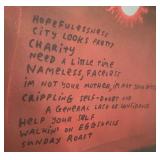 HOPEFULESSNESS
CITY LOOKS PRETTY
CHARITY
NEED A LITTLE TIME
NAMELESS, FACELESS
I'M NOT YOUR MOTHER, I'M NOT YOUR BITCH
CRIPPLING SELF-DOUBT AND
A GENERAL LACK OF CONFIDENCE
HELP YOUR SELF
WALKIN' ON EGGSHELLS
SUNDAY ROAST